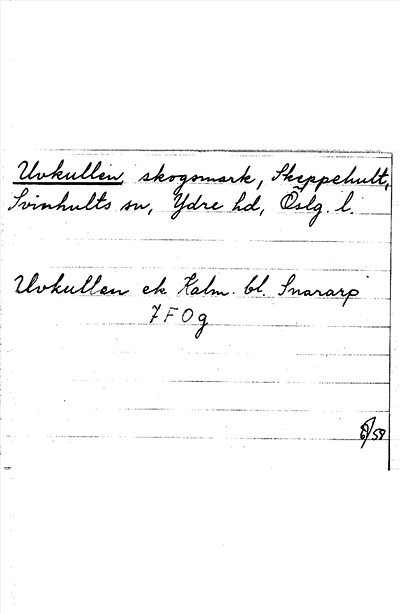 Uvkullen, skogsmark, Skeppehult,
Svinhults sn, Ydre hd, Öslg. l.
Uvkullen ek Kalm. bl. Snararp
7 F 0 g
/59